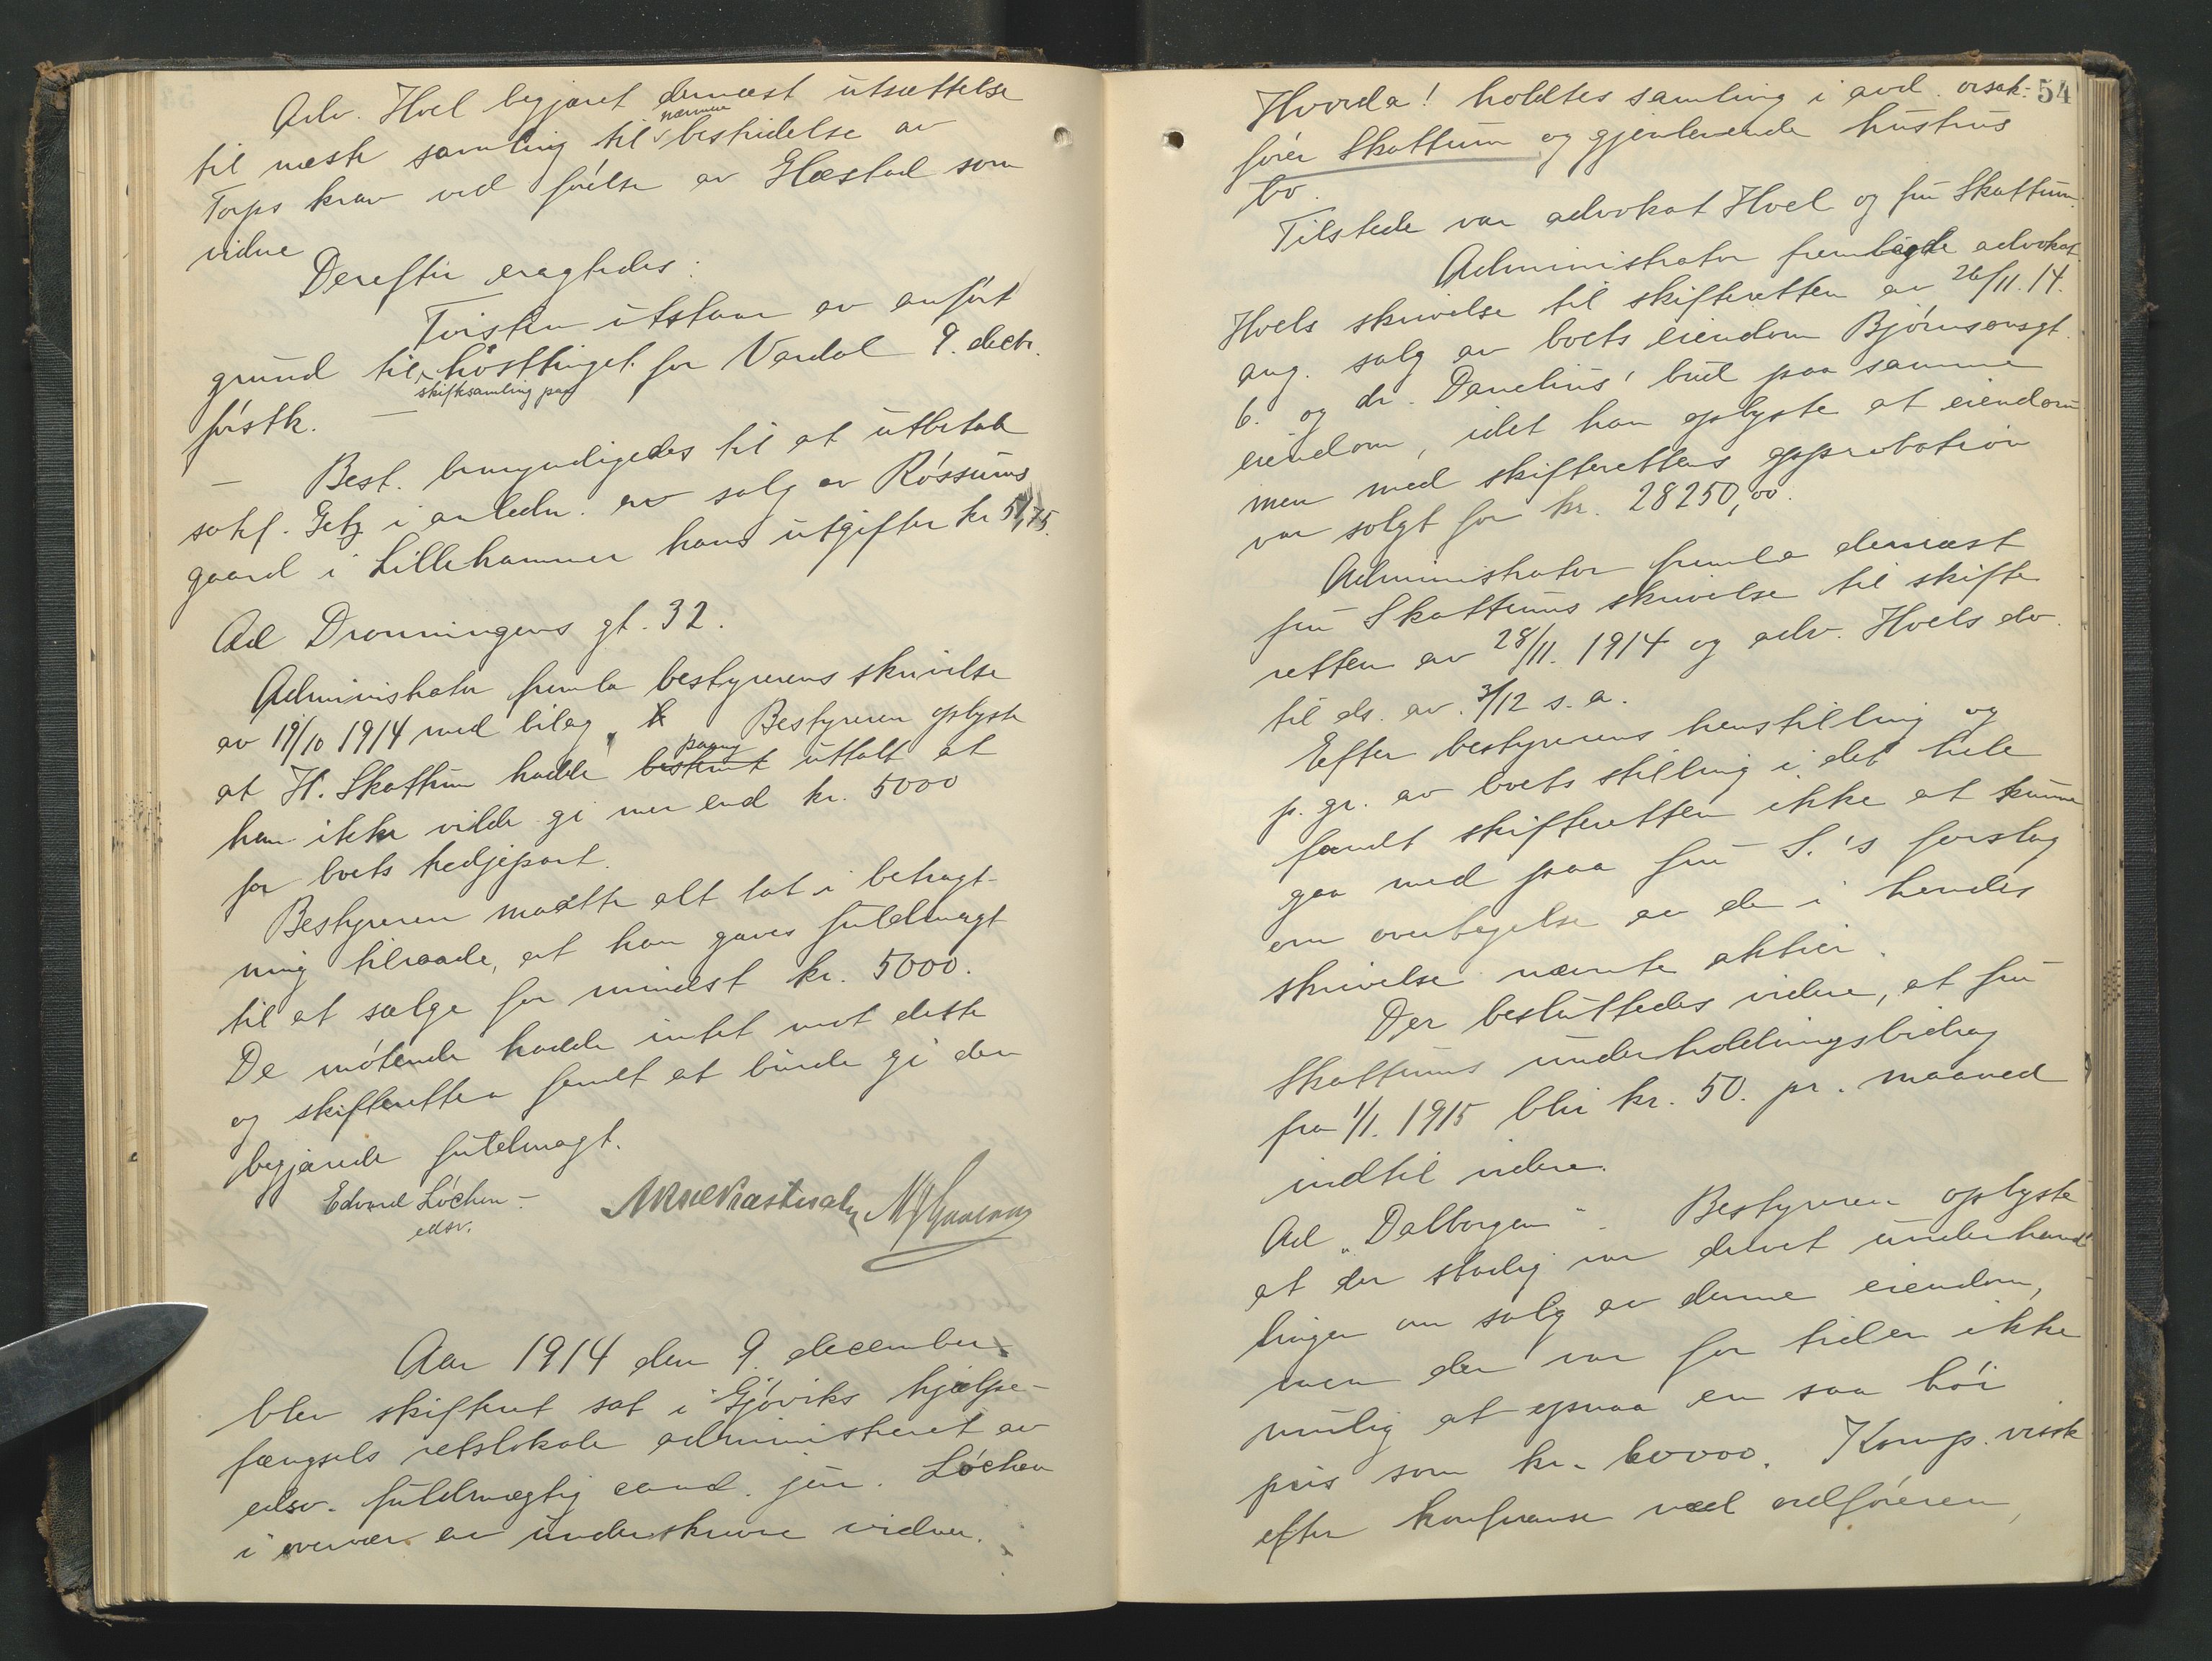 Adv. Hoel begjæret dernæst utsættelse
til næste samling til nærmere bestridelse av
Torps krav ved førelse av Glæstad som
vidne
Derefter eragtedes:
Tvisten utstaar av anført
grund til skiftesamling paa høsttinget for Vardal 9. decbr.
førstk. —
— Best. bemyndigedes til at utbetale
sakf. Getz i anledn. av salg av Røssums
gaard i Lillehammer hans utgifter kr 51,75.
Ad Dronningens gt. 32.
Administrator fremla bestyrerens skrivelse
av 19/10 1914 med bilag. Bestyreren oplyste
at H. Skattum hadde bestemt paany uttalt at
han ikke vilde gi mer end kr. 5000
for boets tredjepart.
Bestyreren maatte alt tat i betragt-
ning tilraade, at han gaves fuldmagt
til at sælge for mindst kr. 5000.
De møtende hadde intet mot dette
og skifteretten fandt at burde gi den
begjærede fuldmagt.
Edvard Løchen –
edsv.
Aar 1914 den 9. december
blev skifteret sat i Gjøviks hjælpe-
fængsels retslokale administreret av
edsv. fuldmægtig cand. jur. Løchen
i overvær av underskrevne vidner.
54
Hvorda! holdtes samling i avd. orsak-
fører Skattum og gjenlevende hustrus
bo.
Tilstede var advokat Hoel og fru Skattum.
Administrator fremlagde advokat
Hoels skrivelse til skifteretten av 26/11. 14.
ang. salg av boets eiendom Bjørnsonsgt.
6. og dr. Danelius' bud paa samme
eiendom, idet han oplyste at eiendom
men med skifterettens approbation
var solgt for kr. 28250,00.
Administrator fremla dernæst
fru Skattums skrivelse til skifte
retten av 28/11. 1914 og adv. Hoels do.
til ds. av. 3/12 s. a.
Efter bestyrerens henstilling og
p. gr. av boets stilling i det hele
fandt skifteretten ikke at kunne
gaa med paa fru S.'s forslag
om overtagelse av de i hendes
skrivelse nævnte aktier.
Der besluttedes videre, at fru
Skattums underholdningsbidrag
fra 1/1. 1915 blir kr. 50. pr. maaned
indtil videre.
Ad „Dalborgen“. Bestyreren oplyste
at der stadig var drevet underhand-
linger om salg av denne eiendom,
men der var for tiden ikke
mulig at opnaa en saa høi
pris som kr. 60000. Komp. visste
efter konferanse med ordføreren,